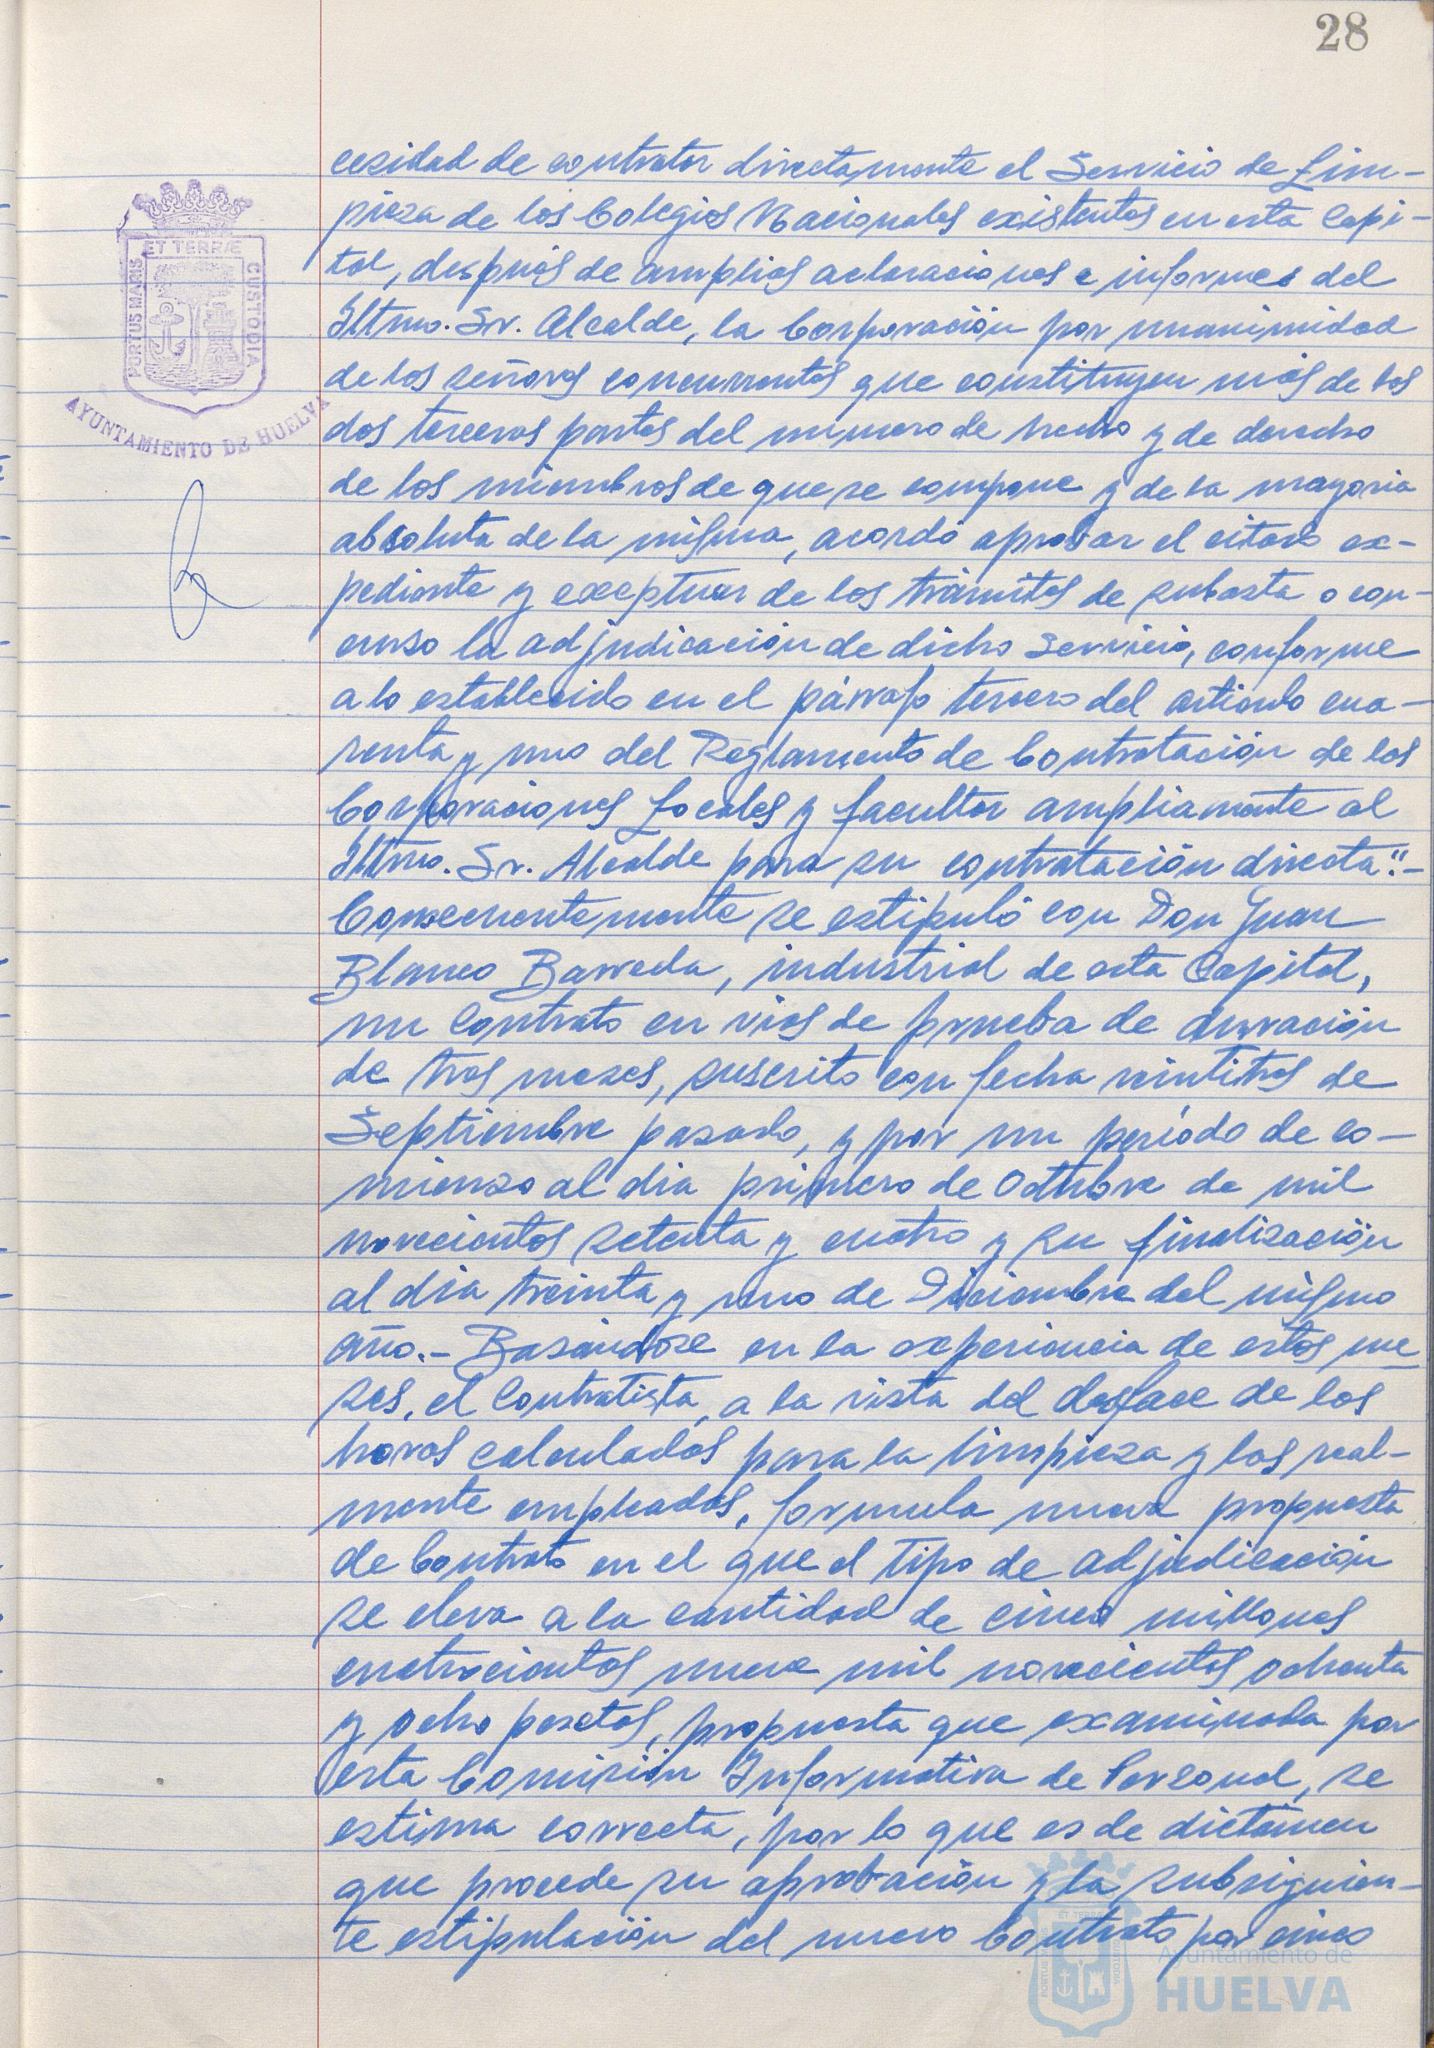 28
cesidad de contratar directamente el Servicio de Lim-
pieza de los Colegios Nacionales existentes en esta Capi-
tal, después de amplias aclaraciones e informes del
Iltmo. Sr. Alcalde, la Corporación por unanimidad
de los señores concurrentes que constituyen más de las
dos terceras partes del número de hecho y de derecho
de los miembros de que se compone y de la mayoría
absoluta de la misma, acordó aprobar el citado ex-
pediente y exceptuar de los trámites de subasta o con-
curso la adjudicación de dicho Servicio, conforme
a lo establecido en el párrafo tercero del artículo cua-
renta y uno del Reglamento de Contratación de las
Corporaciones Locales y facultar ampliamente al
Iltmo. Sr. Alcalde para su contratación directa".-
Consecuentemente se estipuló con Don Juan
Blanco Barreda, industrial de esta Capital,
un Contrato en vías de prueba de duración
de tres meses, suscrito con fecha veintitres de
Septiembre pasado, y por un período de co-
mienzo al día primero de Octubre de mil
novecientos setenta y cuatro y su finalización
al día treinta y uno de Diciembre del mismo
año.- Basándose en la experiencia de estos me-
ses, el Contratista, a la vista del desface de las
horas calculadas para la limpieza y las real-
mente empleadas, formula nueva propuesta
de Contrato en el que el tipo de adjudicación
se eleva a la cantidad de cinco millones
cuatrocientos nueve mil novecientos ochenta
y ocho pesetas, propuesta que examinada por
esta Comisión Informativa de Personal, se
estima correcta, por lo que es de dictamen
que procede su aprobación y la subsiguien-
te estipulación del nuevo Contrato por cinco
ET TERRÆ
PORTUS MARIS
CUSTODIA
AYUNTAMIENTO DE HUELVA
Ayuntamiento de
HUELVA